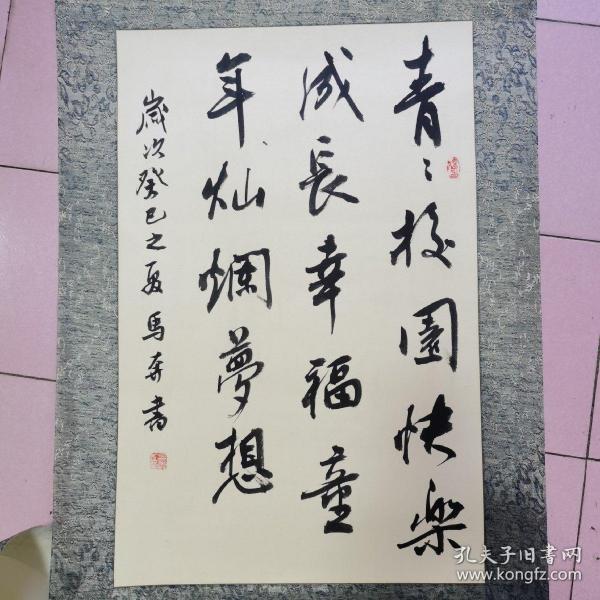 青〻校園快樂
成長幸福童
年灿爛夢想
歲次癸巳之夏馬奔書
孔夫子旧書网
www.kongfz.com